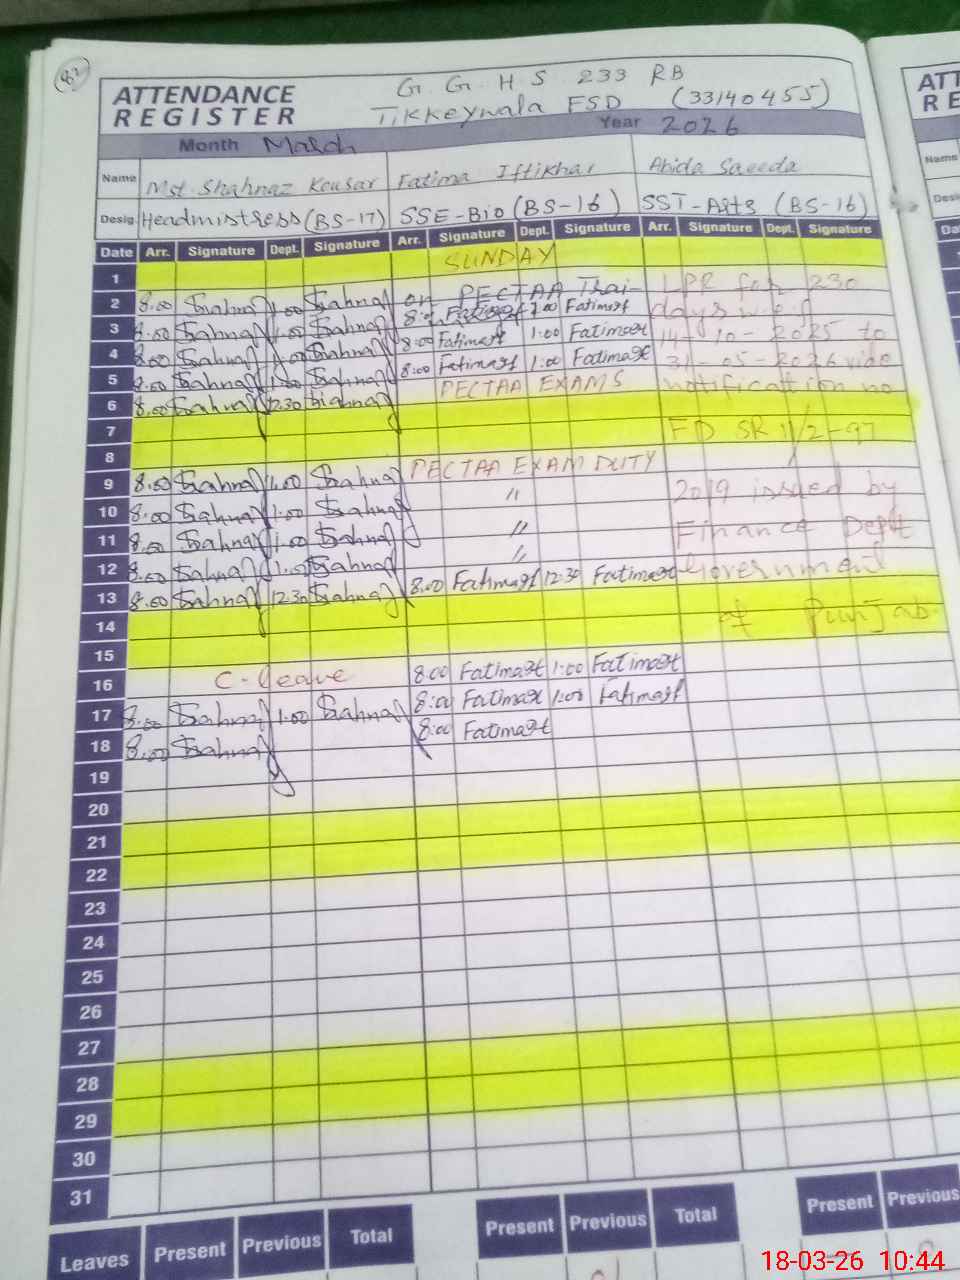 82
G. G. H. S 233 RB
Tikkeywala FSD (33140455)
ATTENDANCE
REGISTER
Month March
Year 2026
Name Mst. Shahnaz Kousar Fatima Iftikhar Abida Saeeda
Desig. Headmistress (BS-17) SSE-Bio (BS-16) SST-Arts (BS-16)
Date Arr. Signature Dept. Signature Arr. Signature Dept. Signature Arr. Signature Dept. Signature
1 SUNDAY
2 8:00 1:00 on PECTAA Trai- LPR for 230
3 8:00 1:00 8:00 1:00 days w.e.f
4 8:00 1:00 8:00 1:00 14-10-2025 to
5 8:00 1:00 8:00 1:00 31-05-2026 vide
6 8:00 12:30 PECTAA EXAMS notification no
7
8 FD SR 11/2-97/
9 8:00 1:00 PECTAA EXAM DUTY
10 8:00 1:00 " 2019 issued by
11 8:00 1:00 " Finance Deptt
12 8:00 1:00 " Government
13 8:00 12:30 8:00 12:30
14 of Punjab.
15
16 C-leave 8:00 1:00
17 8:00 1:00 8:00 1:00
18 8:00 8:00
19
20
21
22
23
24
25
26
27
28
29
30
31
Leaves Present Previous Total Present Previous Total Present Previous
ATT
RE
Name
Desig
Da
18-03-26 10:44